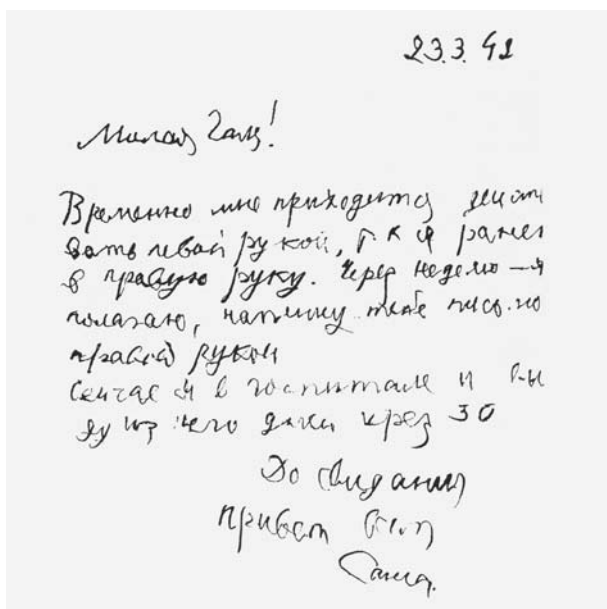 23.3.42
Милая Галя!
Временно мне приходится действо
вать левой рукой, т.к я ранен
в правую руку. Через неделю – я
полагаю, напишу тебе письмо
правой рукой
Сейчас я в госпитале и вы
из него дней через 30
До свидания
Привет
Саша.